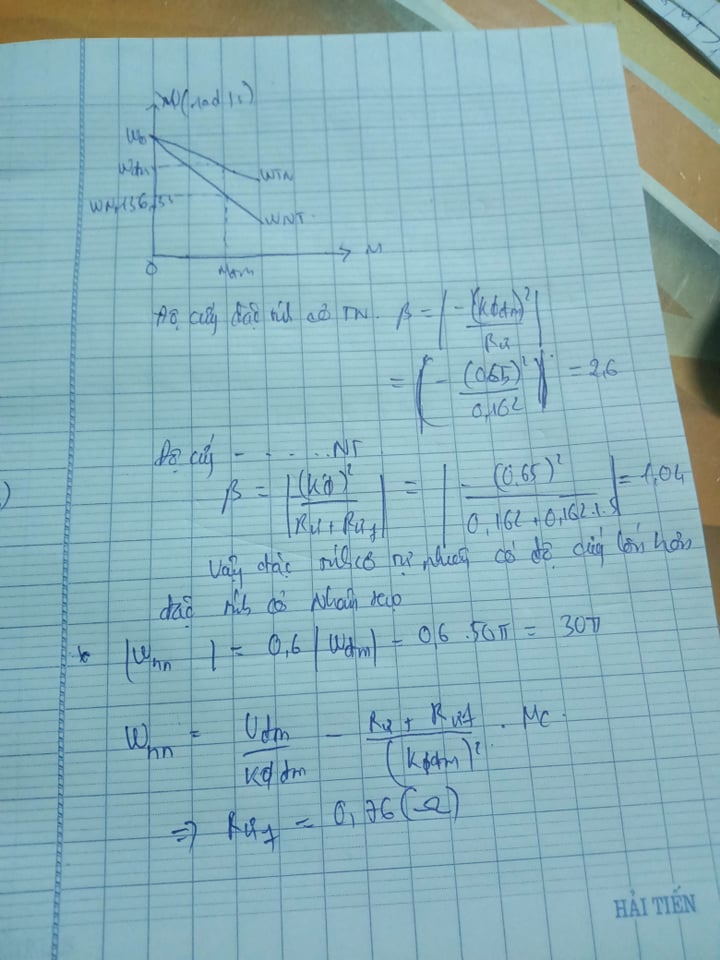 ω(rad/s)
ω₀
ωđm
ωTN
ωN,136,35
ωNT
0
Mđm
M
Độ cứng đặc tính cơ TN. β = |-(Kφđm)²/Rư|
= |-(0,65)²/0,162| = 2,6
Độ cứng - - . . . . NT
β = |(Kφ)²/(Rư + Rưf)| = |-(0.65)²/(0,162 + 0,162.1.5)| = 1,04
Vậy đặc tính cơ tự nhiên có độ cứng lớn hơn
đặc tính cơ nhân tạo
* |ωnn| = 0,6 |ωđm| = 0,6 . 50π = 30π
ωnn = Uđm/Kφđm - (Rư + Rưf)/(Kφđm)² . Mc.
=> Rưf = 0,76 (Ω)
HẢI TIẾN